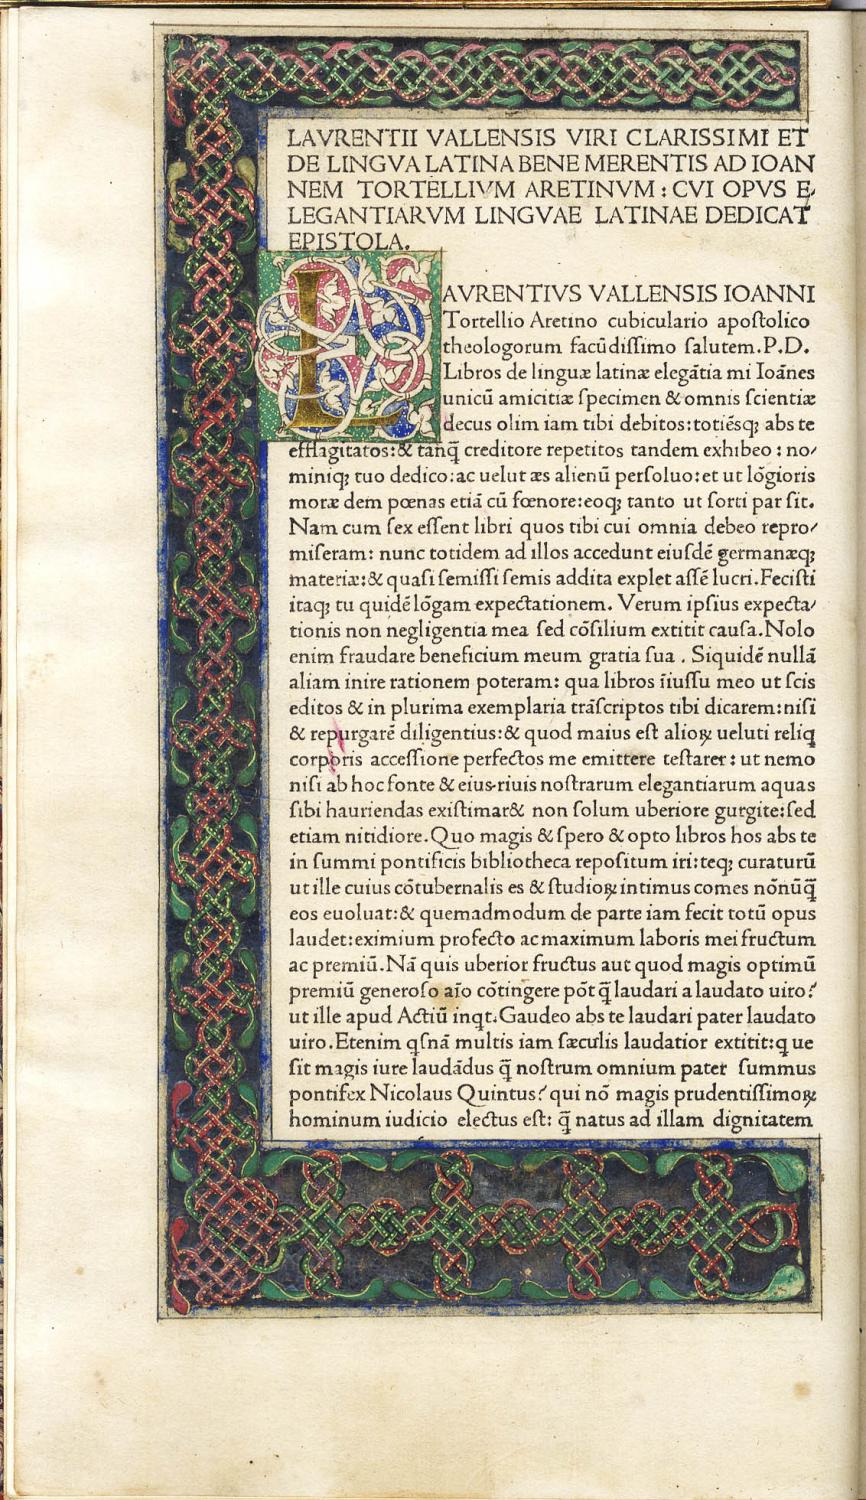 LAVRENTII VALLENSIS VIRI CLARISSIMI ET
DE LINGVA LATINA BENE MERENTIS AD IOAN
NEM TORTELLIVM ARETINVM : CVI OPVS E⸗
LEGANTIARVM LINGVAE LATINAE DEDICAT
EPISTOLA.
LAVRENTIVS VALLENSIS IOANNI
Tortellio Aretino cubiculario apoſtolico
theologorum facūdiſſimo ſalutem.P.D.
Libros de linguæ latinæ elegātia mi Ioānes
unicū amicitiæ ſpecimen & omnis ſcientiæ
decus olim iam tibi debitos:totiēsq; abs te
efflagitatos:& tanq̄ creditore repetitos tandem exhibeo : no⸗
miniq; tuo dedico:ac uelut æs alienū perſoluo:et ut lōgioris
moræ dem pœnas etiā cū fœnore:eoq; tanto ut ſorti par ſit.
Nam cum ſex eſſent libri quos tibi cui omnia debeo repro⸗
miſeram: nunc totidem ad illos accedunt eiuſdē germanæq;
materiæ:& quaſi ſemiſſi ſemis addita explet aſſē lucri.Feciſti
itaq; tu quidē lōgam expectationem. Verum ipſius expecta⸗
tionis non negligentia mea ſed cōſilium extitit cauſa.Nolo
enim fraudare beneficium meum gratia ſua . Siquidē nullā
aliam inire rationem poteram: qua libros īiuſſu meo ut ſcis
editos & in plurima exemplaria trāſcriptos tibi dicarem:niſi
& repurgarē diligentius:& quod maius eſt alioꝝ ueluti reliq
corporis acceſſione perfectos me emittere teſtarer : ut nemo
niſi ab hoc fonte & eius riuis noſtrarum elegantiarum aquas
ſibi hauriendas exiſtimar& non ſolum uberiore gurgite:ſed
etiam nitidiore.Quo magis & ſpero & opto libros hos abs te
in ſummi pontificis bibliotheca repoſitum iri:teq; curaturū
ut ille cuius cōtubernalis es & ſtudioꝝ intimus comes nōnūq̄
eos euoluat:& quemadmodum de parte iam fecit totū opus
laudet:eximium profecto ac maximum laboris mei fructum
ac premiū.Nā quis uberior fructus aut quod magis optimū
premiū generoſo aīo cōtingere pōt q̄ laudari a laudato uiro?
ut ille apud Actiū inqt.Gaudeo abs te laudari pater laudato
uiro.Etenim qſnā multis iam ſæculis laudatior extitit:q ue
ſit magis iure laudādus q̄ noſtrum omnium pater ſummus
pontifex Nicolaus Quintus? qui nō magis prudentiſſimoꝝ
hominum iudicio electus eſt: q̄ natus ad illam dignitatem